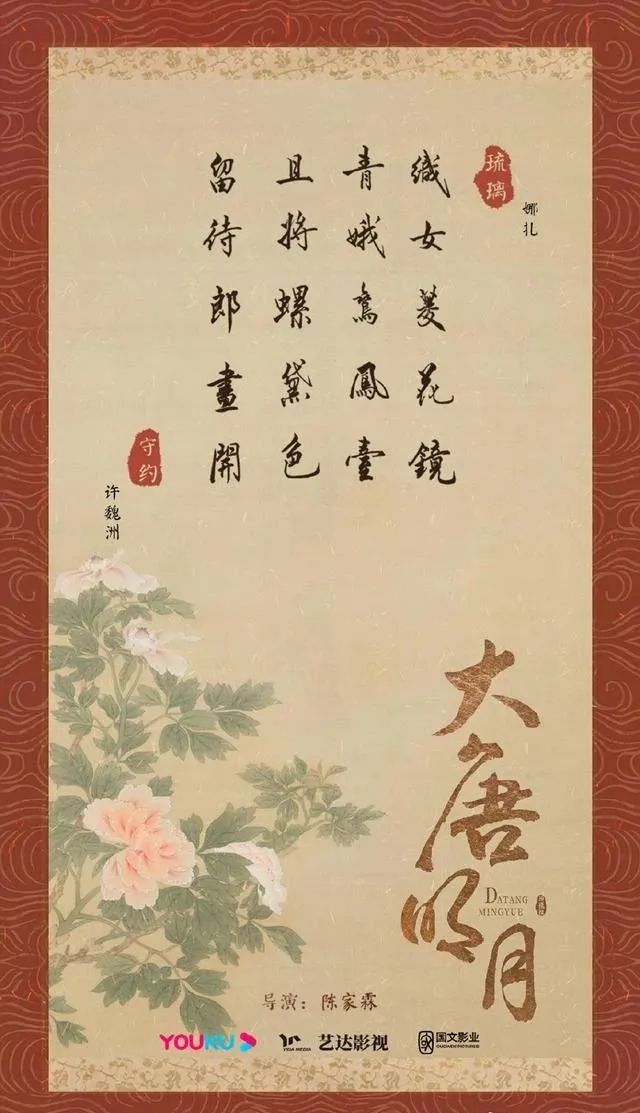 琉璃
娜扎
織女菱花鏡
青娥鸞鳳臺
且將螺黛色
留待郎畫開
守约
许魏洲
大唐明月
DATANG
MINGYUE
导演：陈家霖
YOUKU
YIDA MEDIA
艺达影视
国文影业